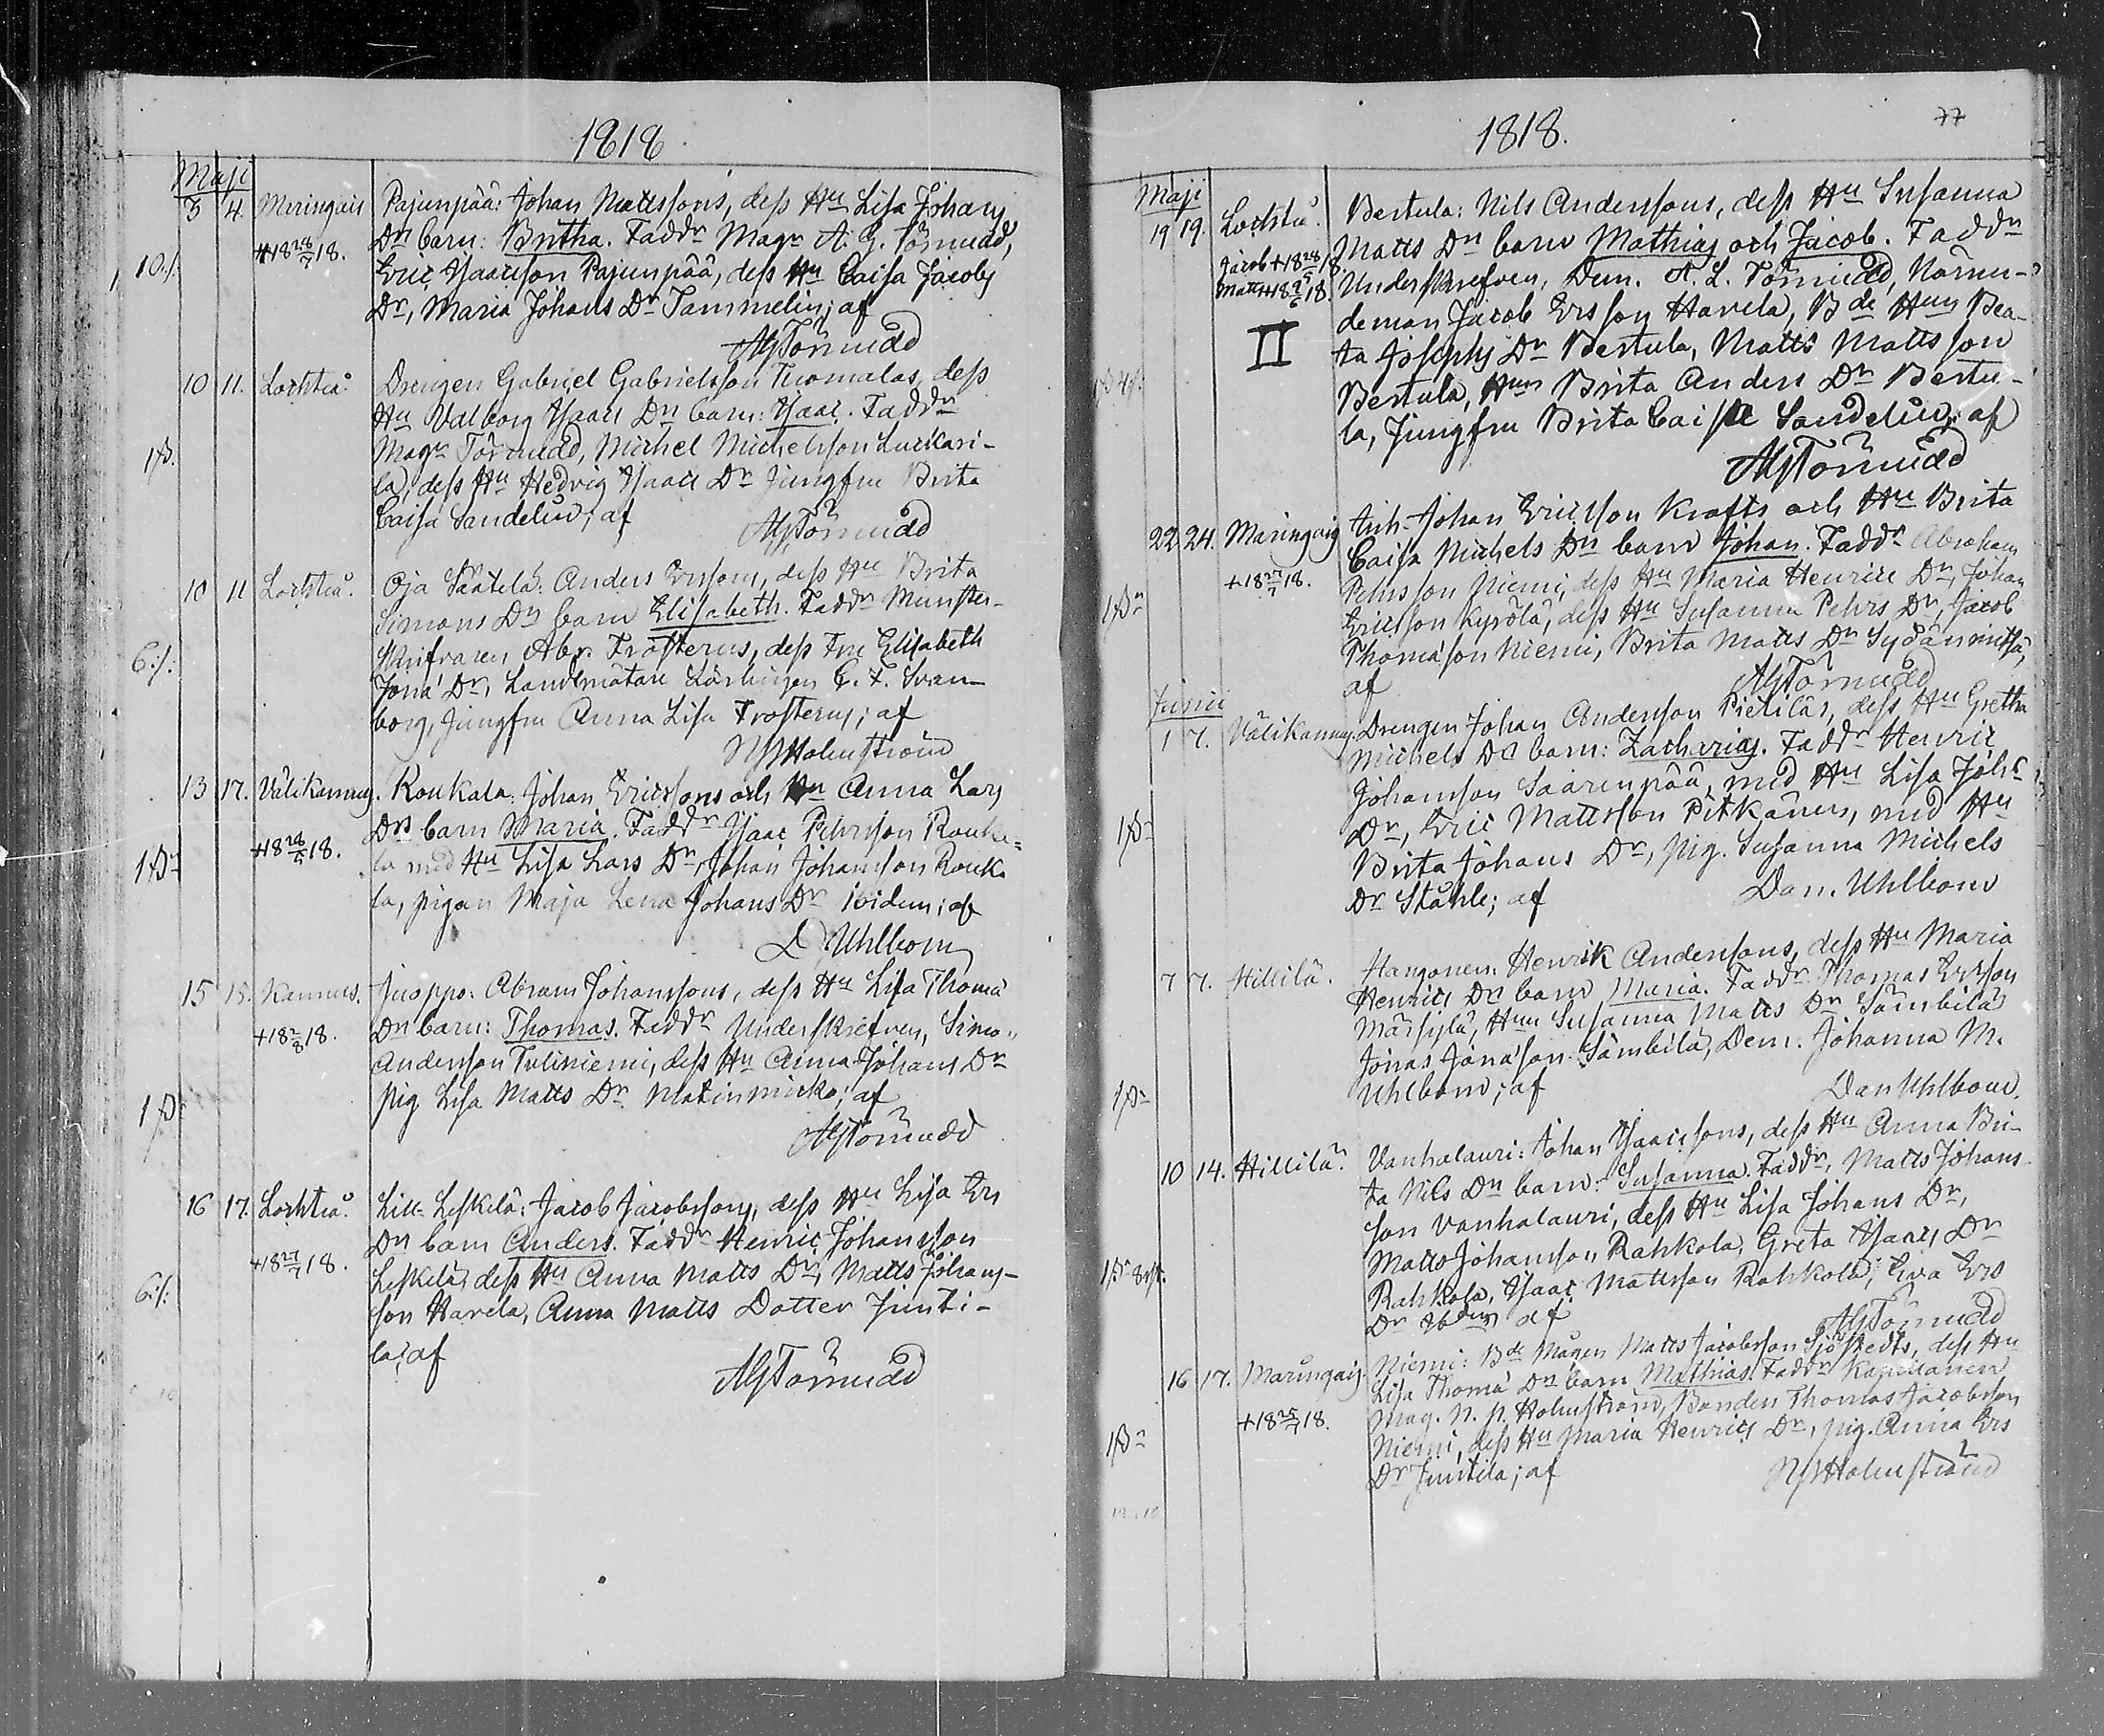 1818
Maji
3 4. Maringais Pajunpää: Johan Mattssons, dess Hu Lisa Johans
+18 28/7 18. Drs barn: Britha. Faddr Magr A. G. Törnudd,
10 s. Eric Isaacson Pajunpää, dess Hu Caisa Jacobs
Dr, Maria Johans Dr Tammelin; af
AGTörnudd
10 11. Lochteå. Drengen Gabriel Gabrielsson Tuomalas, dess
Hu Valborg Isaacs Drs barn: Isaac. Faddr
Magr Törnudd, Michel Michelsson Luckari-
la, dess Hu Hedvig Isaacs Dr Jungfru Brita
Caisa Sandelin; af AGTörnudd
10 11 Lochteå. Oja Säätelä: Anders Erssons, dess Hu Brita
Simons Drs barn Elisabeth. Faddr Munster-
6 s. skrifvaren Abr. Frosterus, dess Fru Elisabeth
Jona Dr, Landtmätare Lärlingen C. F. Svan-
borg, Jungfru Anna Lisa Frosterus; af
NJHolmström
13 17. Välikannus. Roukala: Johan Ericssons och Hu Anna Lars
Drs barn Maria. Faddr Isaac Pehrsson Rouka-
+18 28/5 18. la med Hu Lisa Lars Dr, Johan Johansson Rouka
la, pigan Maja Lena Johans Dr ibidem; af
D Uhlbom
15 15. Kannus. Juoppo: Abram Johanssons, dess Hu Lisa Thomä
+18 2/8 18. Drs barn: Thomas. Faddr Underskrefven, Simon
Andersson Tuliniemi, dess Hu Anna Johans Dr
pig Lisa Matts Dr Matinmicko; af
AGTörnudd
16 17. Lochteå. Lill Leskelä: Jacob Jacobssons, dess Hu Lisa Ers
Drs barn Anders. Faddr Henric Johansson
+18 27/7 18. Leskelä, dess Hu Anna Matts Dr, Matts Johans-
6 s. son Havela, Anna Matts Dotter Junti-
la; af
AGTörnudd
1818.
77
Maji
19 19. Lochteå. Bertula: Nils Anderssons, dess Hu Susanna
Matts Drs barn Mathias och Jacob. Faddr
Jacob +18 28/5 18 Underskrefven, Dem. A. L. Törnudd, Nämn-
Matts +18 9/6 18.
II deman Jacob Ersson Havela, Bde Hun Bea-
ta Josephs Dr Bertula, Matts Mattsson
Bertula, Hun Brita Anders Dr Bertu-
la, Jungfru Brita Caisa Sandelin; af
AGTörnudd
22 24. Maringais Inh. Johan Ericsson Krafts och Hu Brita
Caisa Michels Drs barn Johan. Faddr Abraham
+18 27/7 18. Pehrsson Niemi, dess Hu Maria Henrics Dr, Johan
Ericsson Kyrölä, dess Hu Susanna Pehrs Dr, Jacob
Thomasson Niemi, Brita Matts Dr Sydänmitsä,
af AGTörnudd
Junii
1 7. Välikannus. Drengen Johan Andersson Pietiläs, dess Hu Gretha
Michels Drs barn: Zacharias. Faddr Henric
Johansson Saarenpää, med Hu Lisa Johs
Dr, Eric Mattsson Pitkänen, med Hu
Brita Johans Dr, pig. Susanna Michels
Dr Ståhle; af Dan. Uhlbom
7 7. Hillilä. Hangonen: Henrik Anderssons, dess Hu Maria
Henrics Drs barn Maria. Faddr Thomas Ersson
Märsylä, Hun Susanna Matts Dr Sämbilä
Jonas Jonasson Sämbilä, Dem. Johanna M.
Uhlbom; af Dan Uhlbom.
10 14. Hillilä. Vanhalauri: Johan Isaacssons, dess Hu Anna Bri-
ta Nils Drs barn: Susanna. Faddr, Matts Johans-
son Vanhalauri, dess Hu Lisa Johans Dr,
Matts Johansson Rahkola, Greta Isaacs Dr
Rahkola, Isaac Mattsson Rahkola, Eva Ers
Dr ibdm af AGTörnudd
16 17. Maringais. Niemi: Bde Mågen Matts Jacobsson Sjöstedts, dess Hu
Lisa Thomä Drs barn Mathias. Faddr Kapellanen
+18 25/7 18. Mag. N. J. Holmström, Bonden Thomas Jacobsson
Niemi, dess Hu Maria Henrics Dr, pig. Anna Ers
Dr Juntila; af NJHolmström